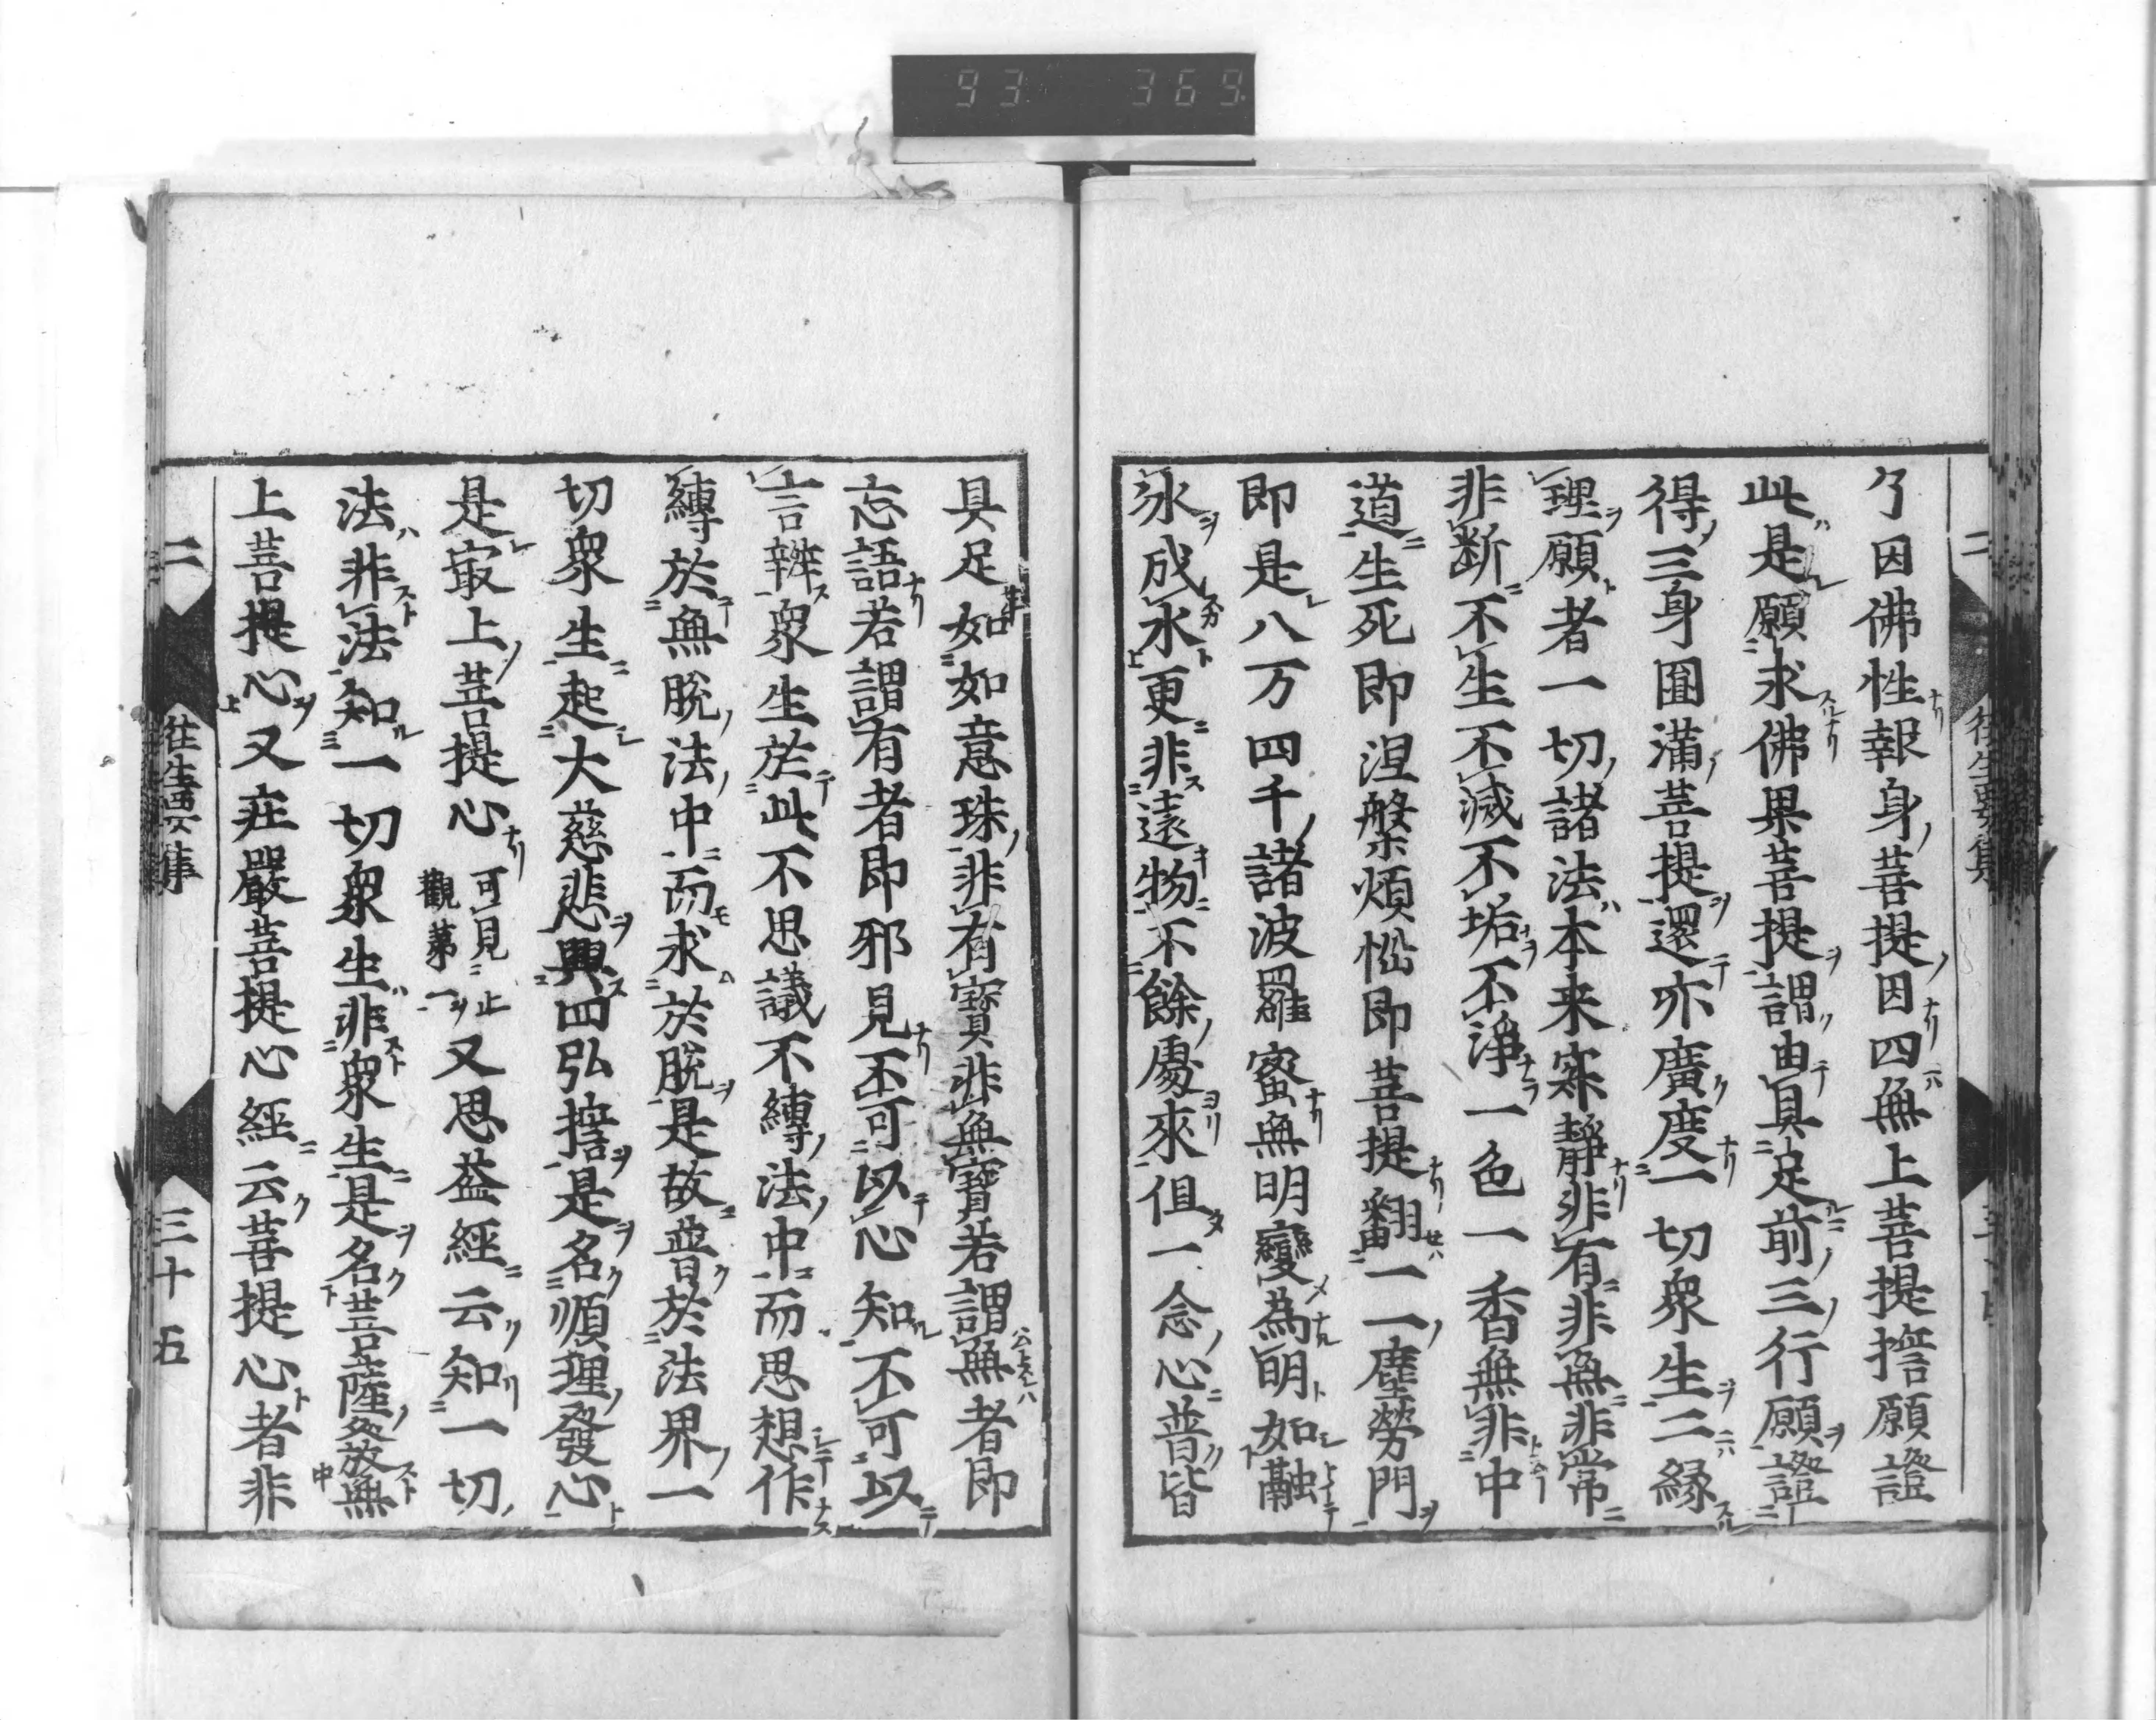 93 369
了因佛性報身菩提因四無上菩提擔願證
此是願求佛果菩提謂由具足前三行願證
得三身圓滿菩提還亦廣度一切衆生二縁
理願者一切諸法本来寂靜非有非無非常
非断不生不滅不垢不淨一色一香無非中
道生死即涅槃煩惱即菩提翻一一塵勞門
即是八万四千諸波羅蜜無明變為明如融
氷成水更非遠物不餘處來但一念心普皆
具足如如意珠非有寶非無寶若謂無者即
忘語若謂有者即邪見不可以心知不可以
言辨衆生於此不思議不縛法中而思想作
縛於無脫法中而求於脫是故普於法界一
切衆生起大慈悲興四弘誓是名順理發心
是冣上菩提心可見止觀第一又思益經云知一切
法非法知一切衆生非衆生是名菩薩發無
上菩提心又荘嚴菩提心經云菩提心者非
二 往生要集 三十五